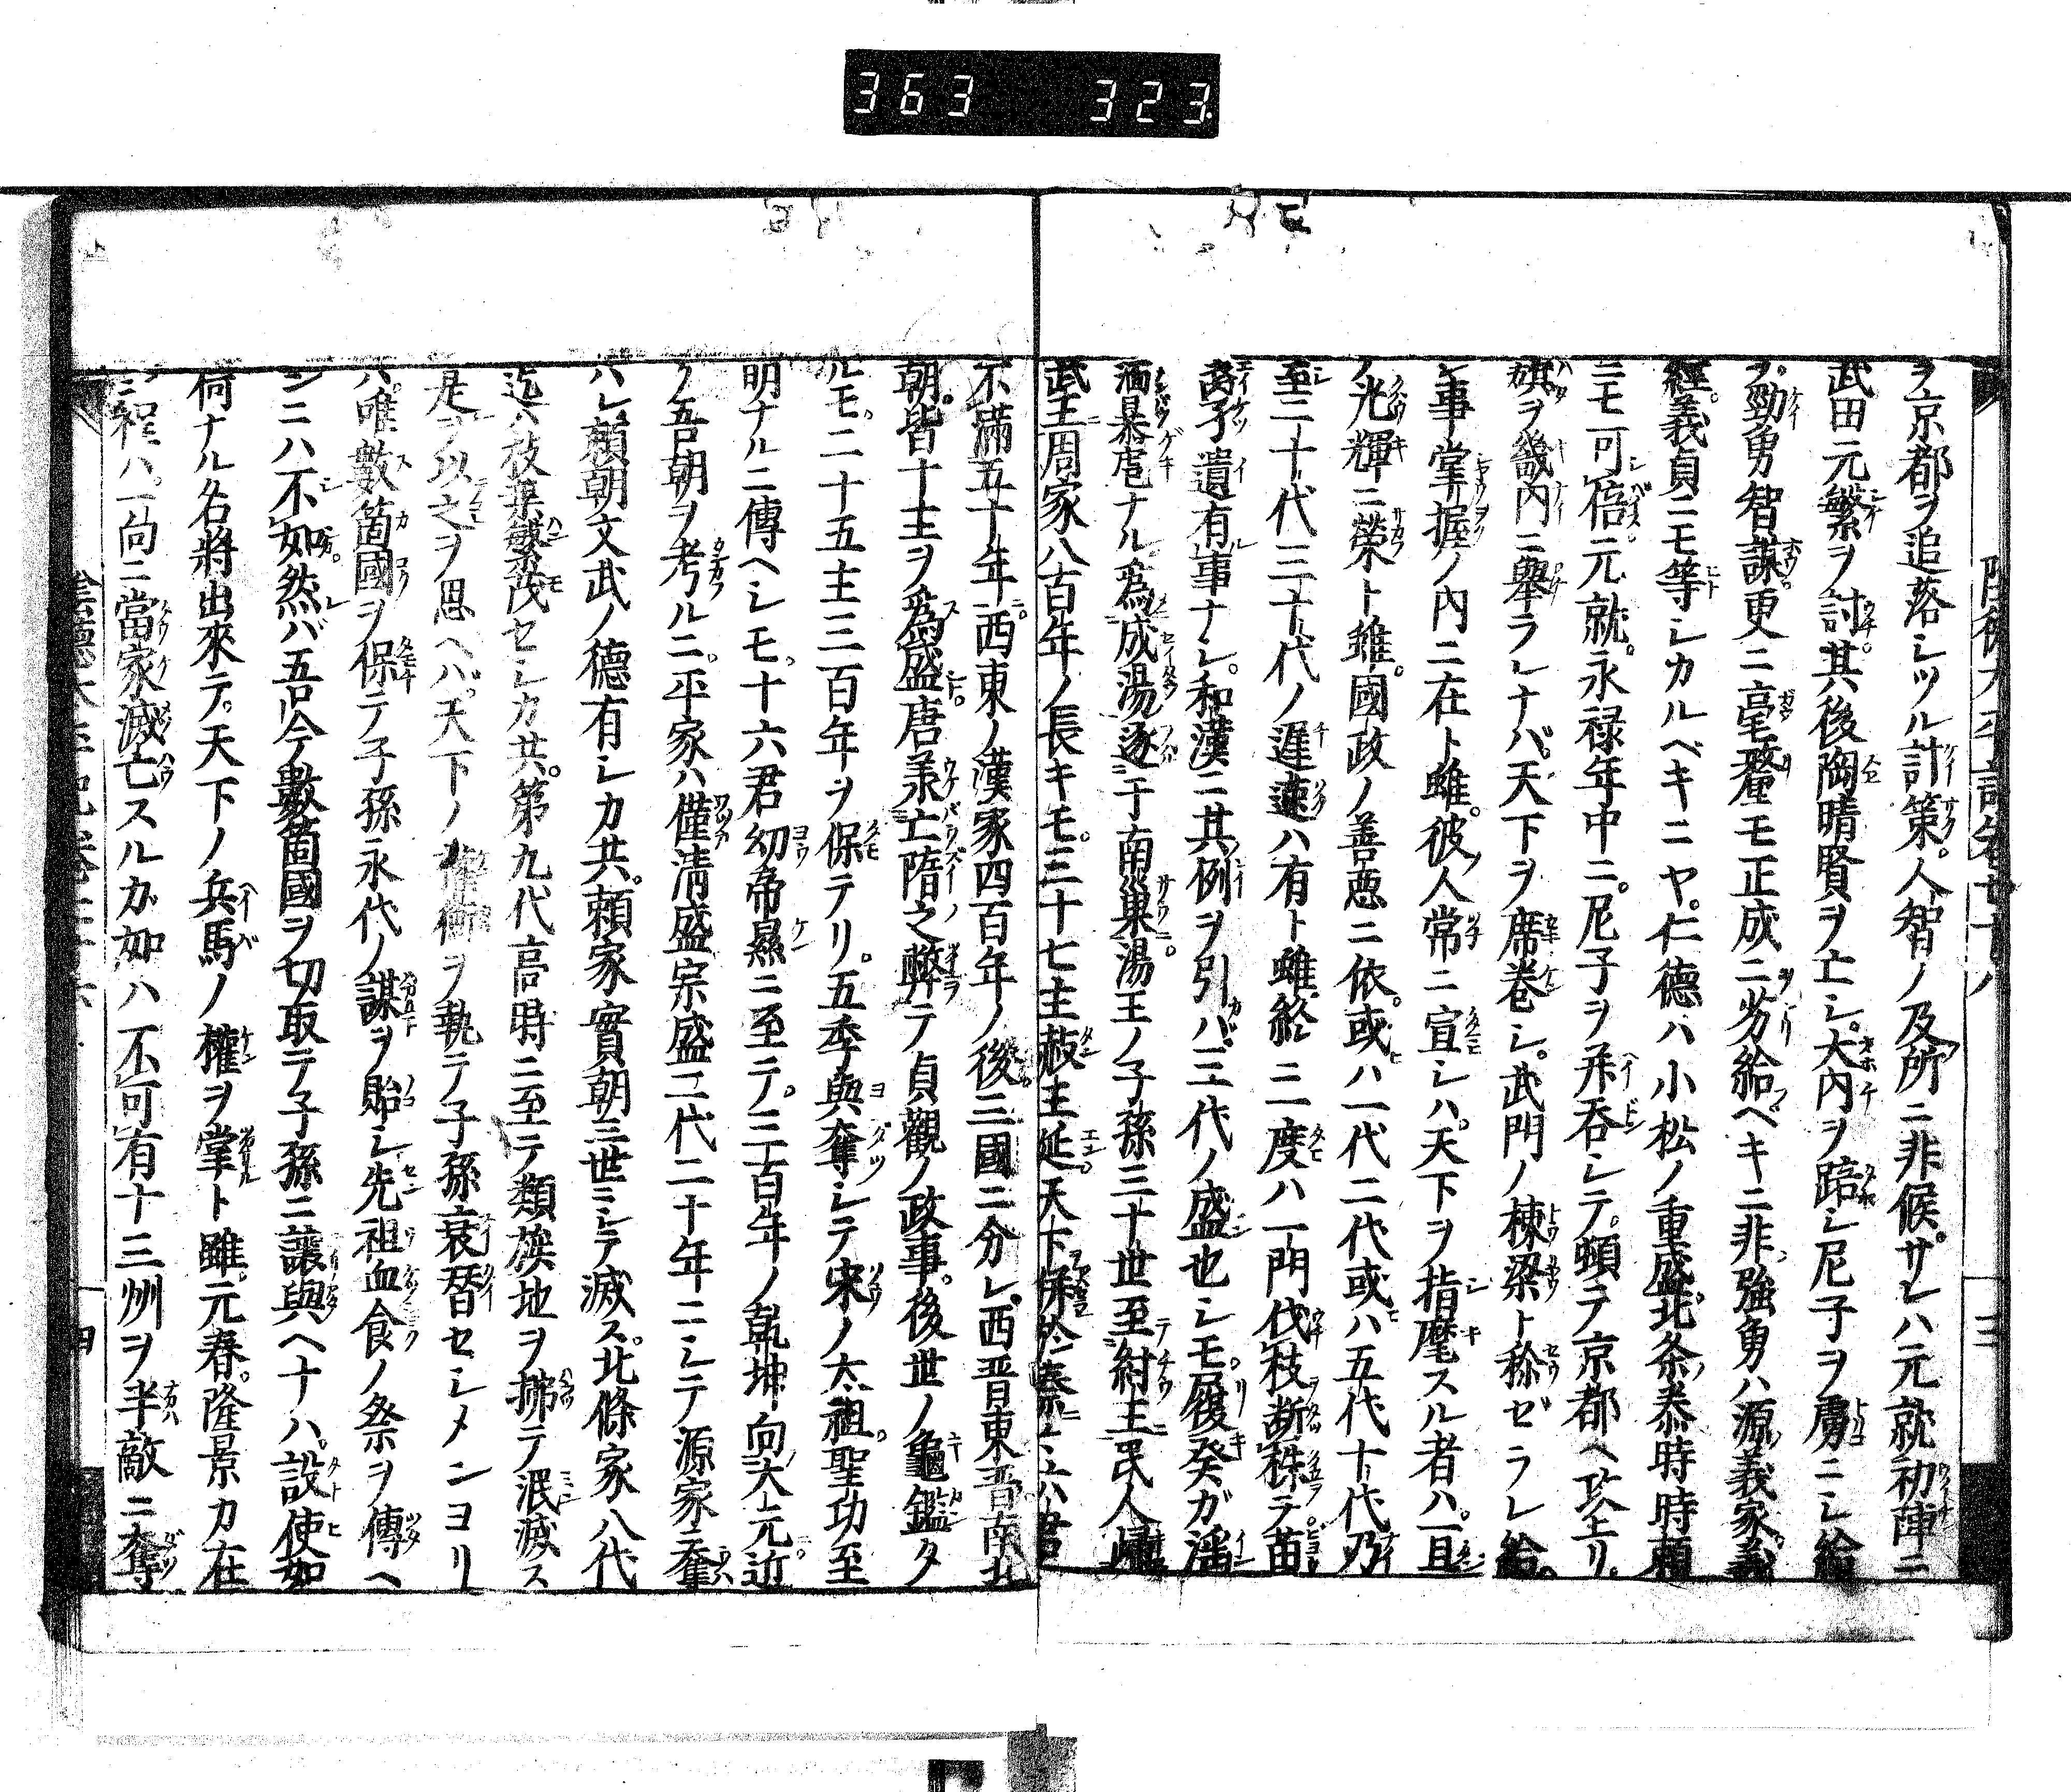 363 323
ヲ京都ヲ追落シツル計策。人智ノ及所ニ非候。サレハ元就初陣ニ
武田元繁ヲ討。其後陶晴賢ヲ亡シ。大内ヲ蹈シ尼子ヲ虜ニシ給
フ。勁勇智謀更ニ毫釐モ正成ニ劣給ベキニ非。強勇ハ源義家。義
經。義貞ニモ等シカルベキニヤ。仁德ハ小松ノ重盛北条泰時時頼
ニモ可倍。元就。永禄年中ニ。尼子ヲ并呑シテ。頓テ京都ヘ攻上リ。
旗ヲ畿内ニ擧ラレナバ。天下ヲ席巻シ。武門ノ棟梁ト称ゼラレ給。
ン事掌握ノ内ニ在ト雖。彼人常ニ宣シハ。天下ヲ指麾スル者ハ。一旦
ノ光輝ニ榮ト雖。國政ノ善悪ニ依。或ハ一代二代或ハ五代十代乃
至二十代三十代ノ遲速ハ有ト雖終ニ一度ハ一門伐枝断秼テ苗
裔孑遺有事ナシ。和漢ニ其例ヲ引バ。三代ノ盛也シモ。履癸ガ淫
湎暴虐ナル為成湯逐于南巢。湯王ノ子孫三十世至紂王民人歸
武王周家八百年ノ長キモ。三十七主赧王延天下保於秦二六君
不滿五十年。西東ノ漢家四百年ノ後三國ニ分レ。西晋東晋南北
朝。皆十主ヲ為盛。唐羕亡隋之弊テ貞觀ノ政事。後世ノ龜鑑タ
ルモ。二十五主三百年ヲ保テリ。五季與奪シテ宋ノ太祖。聖功至
明ナルニ傳ヘシモ。十六君幼帝㬎ニ至テ。三百年ノ乾坤向大元近
ク吾朝ヲ考ルニ。平家ハ僅清盛宗盛二代二十年ニシテ源家ニ奪
ハレ頼朝文武ノ德有シカ共。頼家實朝三世ニシテ滅ス。北條家八代
迄ハ枝葉繁茂セシカ共。第九代高時ニ至テ類族地ヲ拂テ泯滅ス
是ヲ以之ヲ思ヘバ。天下ノ權衡ヲ執テ子孫衰替セシメンヨリ
ハ。唯數箇國ヲ保テ子孫永代ノ謀ヲ貽シ先祖血食ノ祭ヲ傳ヘ
ンニハ不如。然バ吾今數箇國ヲ切取テ子孫ニ讓與ヘナハ。設使如
何ナル名將出來テ。天下ノ兵馬ノ權ヲ掌ト雖。元春。隆景カ在
ン程ハ。一向ニ當家滅亡スルカ如ハ不可有十三州ヲ半敵ニ奪